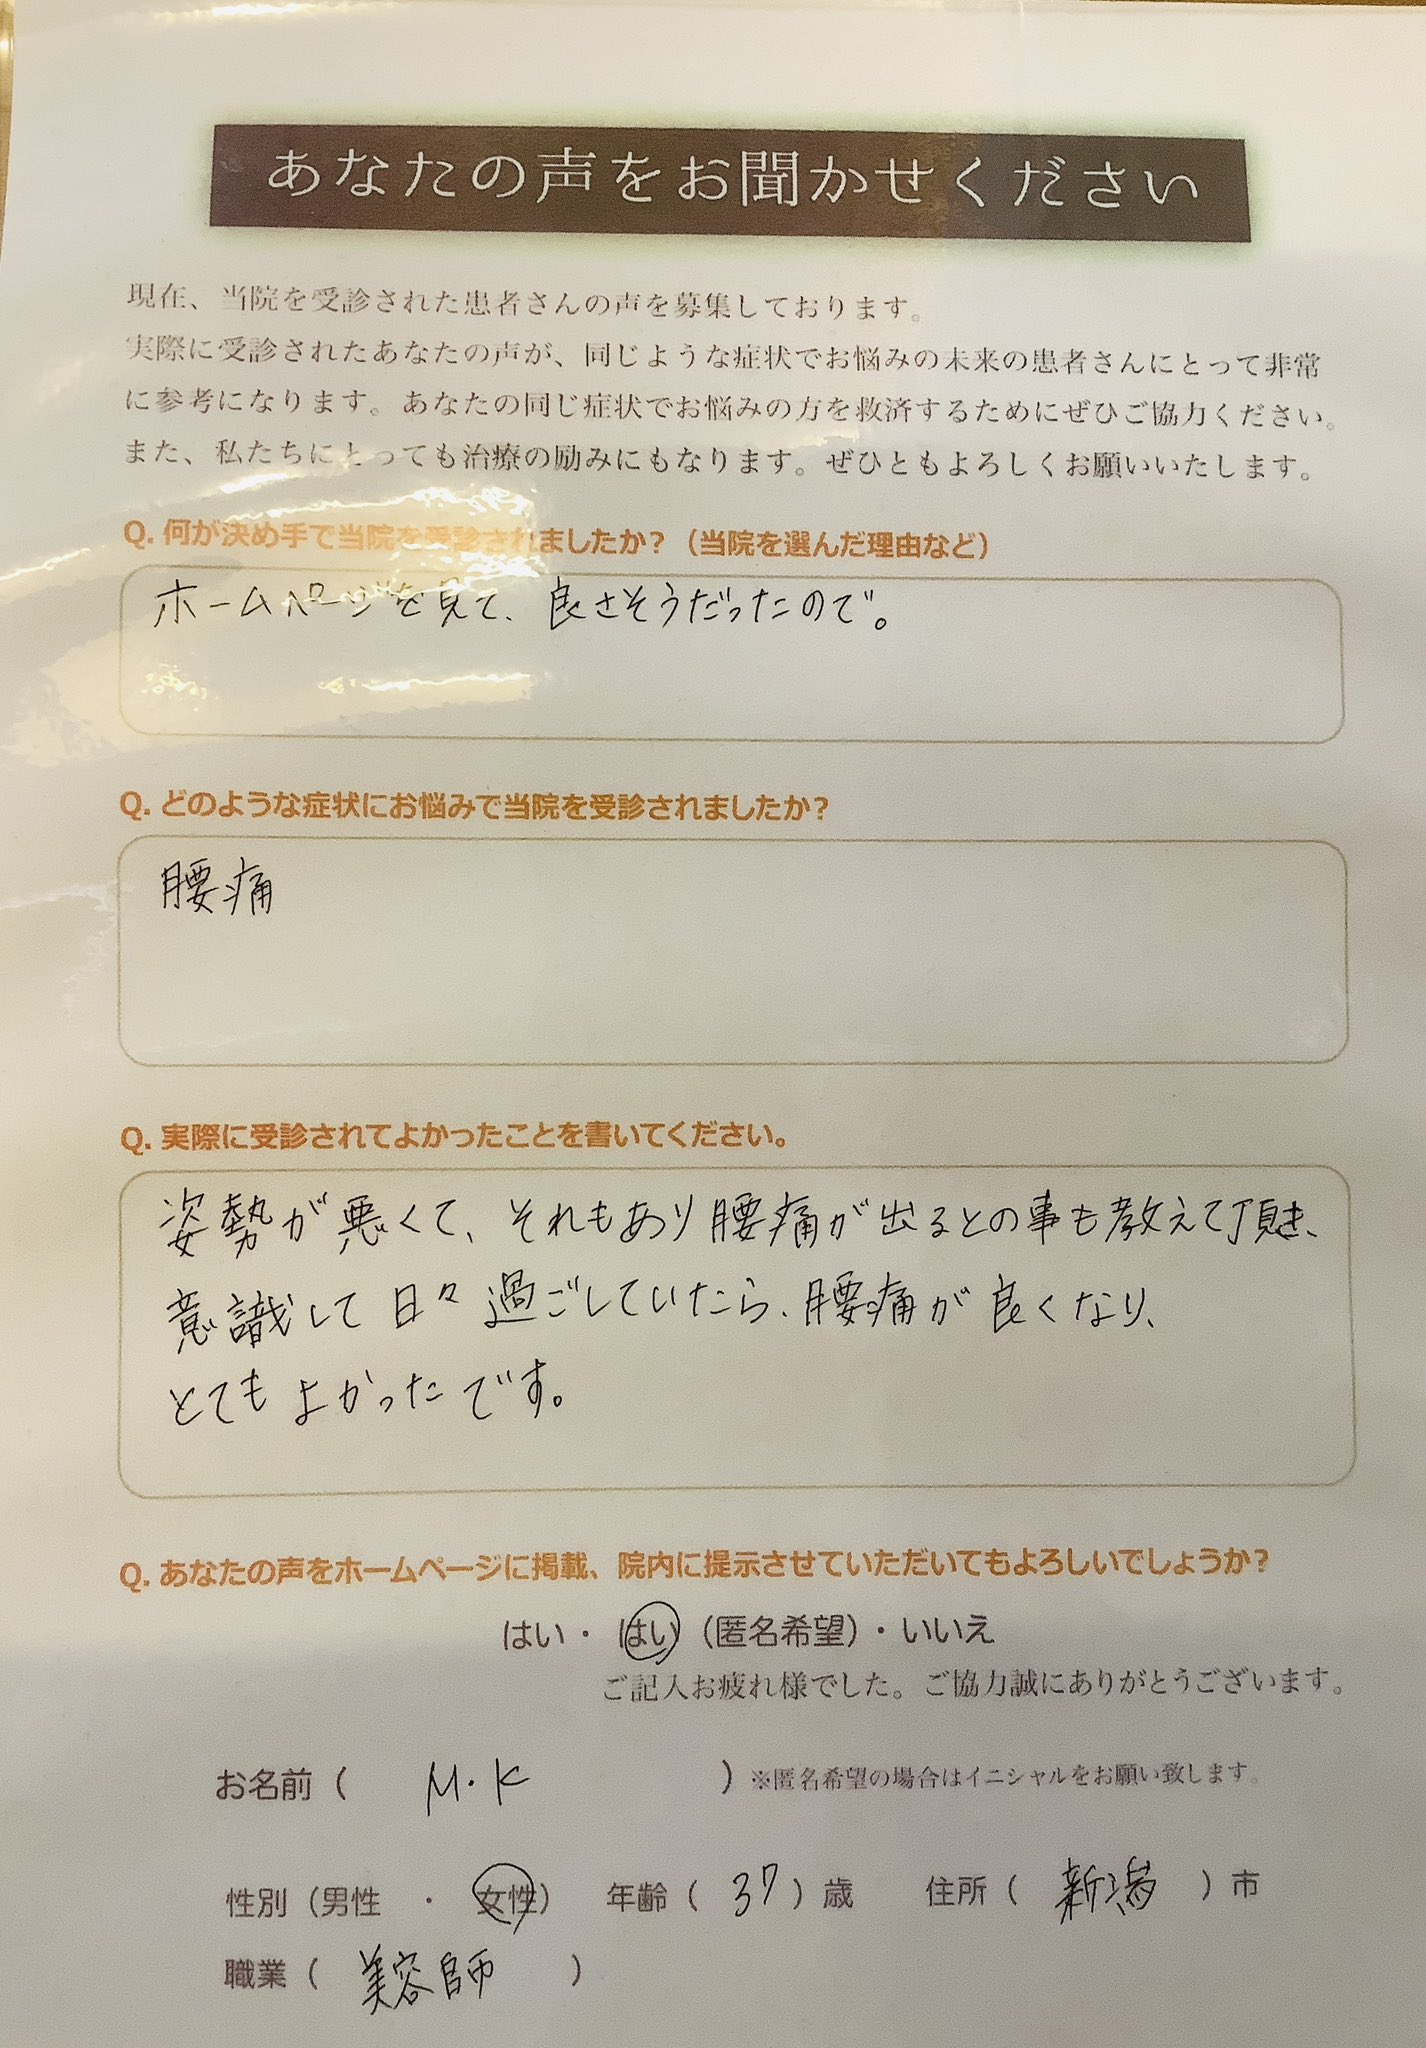 あなたの声をお聞かせください
現在、当院を受診された患者さんの声を募集しております。
実際に受診されたあなたの声が、同じような症状でお悩みの未来の患者さんにとって非常
に参考になります。あなたの同じ症状でお悩みの方を救済するためにぜひご協力ください。
また、私たちにとっても治療の励みにもなります。ぜひともよろしくお願いいたします。
Q. 何が決め手で当院を受診されましたか？（当院を選んだ理由など）
ホームページを見て、良さそうだったので。
Q. どのような症状にお悩みで当院を受診されましたか？
腰痛
Q. 実際に受診されてよかったことを書いてください。
姿勢が悪くて、それもあり腰痛が出るとの事も教えて頂き、
意識して日々過ごしていたら、腰痛が良くなり、
とてもよかったです。
Q. あなたの声をホームページに掲載、院内に提示させていただいてもよろしいでしょうか？
はい・はい（匿名希望）・いいえ
ご記入お疲れ様でした。ご協力誠にありがとうございます。
お名前（ M・K ）※匿名希望の場合はイニシャルをお願い致します。
性別（男性 ・ 女性） 年齢（ 37 ）歳 住所（ 新潟 ）市
職業（ 美容師 ）